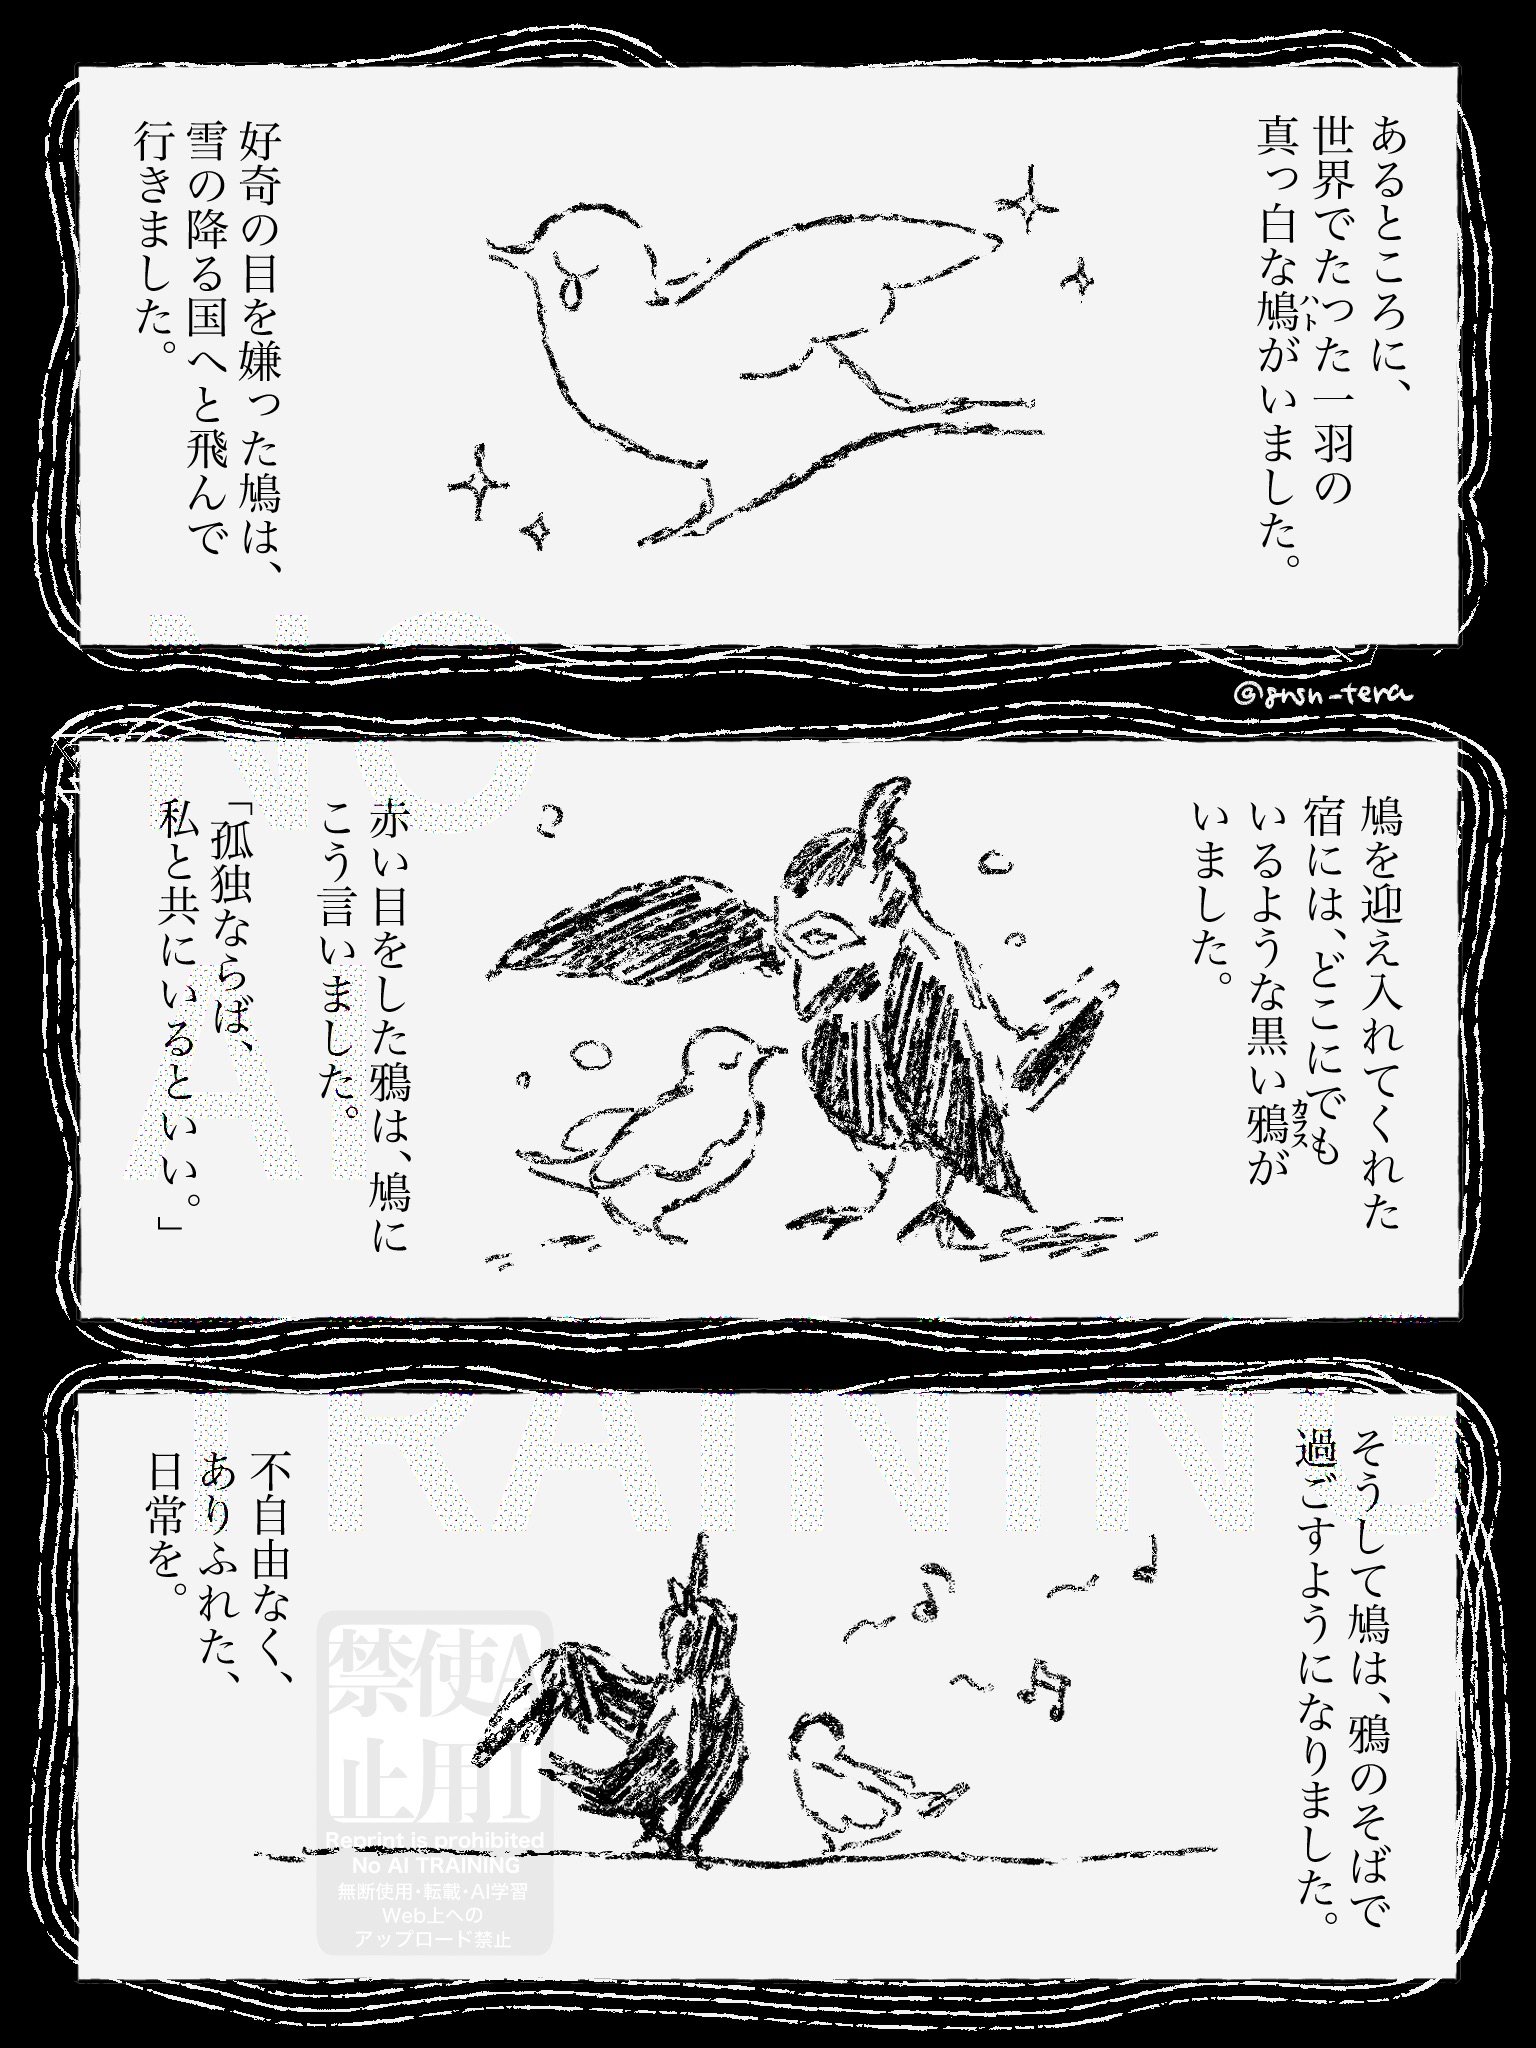 あるところに、
世界でたった一羽の
真っ白な鳩がいました。
ハト
好奇の目を嫌った鳩は、
雪の降る国へと飛んで
行きました。
@snsn_tera
鳩を迎え入れてくれた
宿には、どこにでも
いるような黒い鴉が
カラス
いました。
赤い目をした鴉は、鳩に
こう言いました。
「孤独ならば、
私と共にいるといい。」
そうして鳩は、鴉のそばで
過ごすようになりました。
不自由なく、
ありふれた、
日常を。
NO
NO
AI
TRAINING
AI
使用
禁止
Reprint is prohibited
No AI TRAINING
無断使用・転載・AI学習
Web上への
アップロード禁止